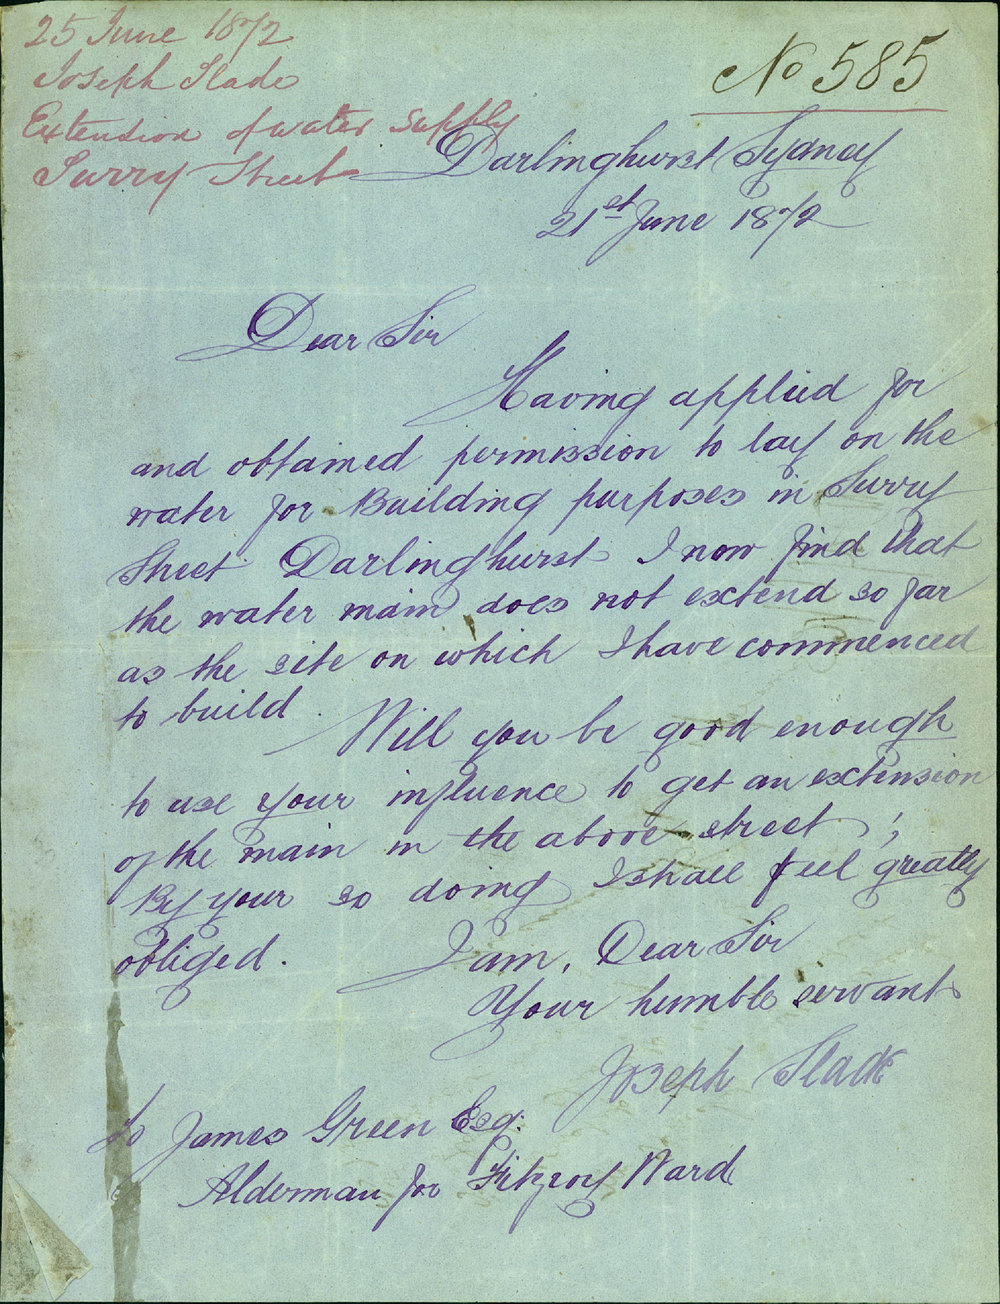 25 June 1872
Joseph Slade
Extension of water supply
Surry Street
No 585
Darlinghurst Sydney
21st June 1872
Dear Sir
Having applied for
and obtained permission to lay on the
water for Building purposes in Surry
Street Darlinghurst I now find that
the water main does not extend so far
as the site on which I have commenced
to build.
Will you be good enough
to use your influence to get an extension
of the main in the above street ;
By your so doing I shall feel greatly
obliged.
I am, Dear Sir
Your humble servant
Joseph Slade
To James Green Esq:
Alderman for Fitzroy Ward